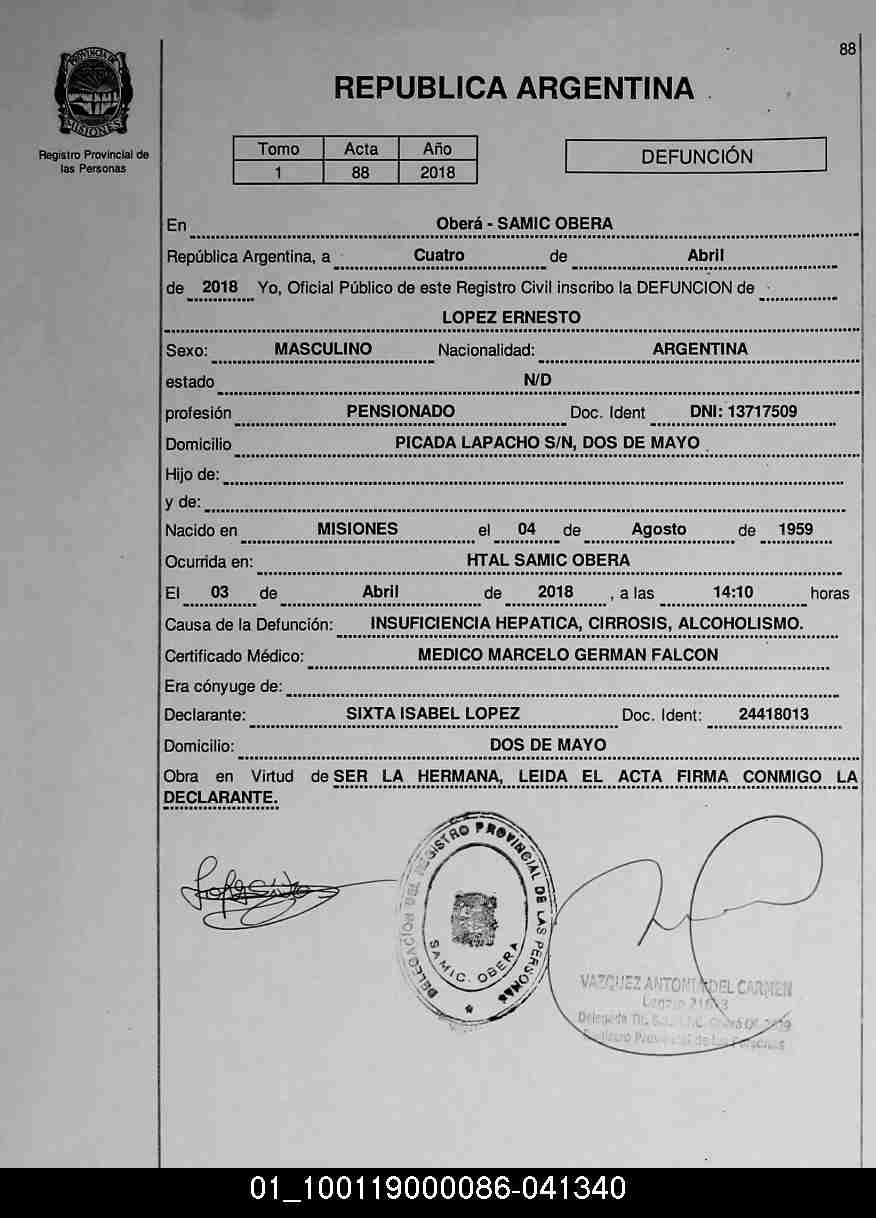 88
PROVINCIA DE
MISIONES
Registro Provincial de
las Personas
REPUBLICA ARGENTINA
Tomo Acta Año
1 88 2018
DEFUNCIÓN
En Oberá - SAMIC OBERA
República Argentina, a Cuatro de Abril
de 2018 Yo, Oficial Público de este Registro Civil inscribo la DEFUNCION de
LOPEZ ERNESTO
Sexo: MASCULINO Nacionalidad: ARGENTINA
estado N/D
profesión PENSIONADO Doc. Ident DNI: 13717509
Domicilio PICADA LAPACHO S/N, DOS DE MAYO
Hijo de:
y de:
Nacido en MISIONES el 04 de Agosto de 1959
Ocurrida en: HTAL SAMIC OBERA
El 03 de Abril de 2018 , a las 14:10 horas
Causa de la Defunción: INSUFICIENCIA HEPATICA, CIRROSIS, ALCOHOLISMO.
Certificado Médico: MEDICO MARCELO GERMAN FALCON
Era cónyuge de:
Declarante: SIXTA ISABEL LOPEZ Doc. Ident: 24418013
Domicilio: DOS DE MAYO
Obra en Virtud de SER LA HERMANA, LEIDA EL ACTA FIRMA CONMIGO LA
DECLARANTE.
DELEGACION DEL REGISTRO PROVINCIAL DE LAS PERSONAS
SAMIC. OBERA
VAZQUEZ ANTONIA DEL CARMEN
Legajo
Delegada
Registro Provincial de las Personas
01_100119000086-041340